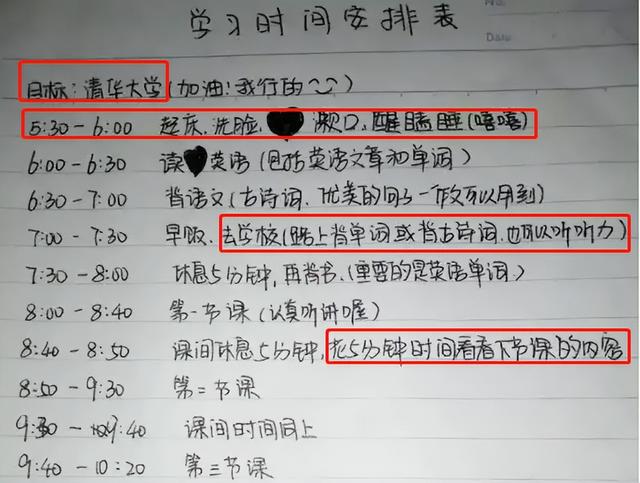 No.
学习时间安排表
Date
目标:清华大学(加油!我行的~)
5:30-6:00 起床、洗脸、漱口、醒瞌睡(嘻嘻)
6:00-6:30 读英语(包括英语文章和单词)
6:30-7:00 背语文(古诗词、优美的句子-作文可以用到)
7:00-7:30 早饭、去学校(路上背单词或背古诗词、也可以听听力)
7:30-8:00 休息5分钟,再背书、(重要的是英语单词)
8:00-8:40 第一节课(认真听讲喔)
8:40-8:50 课间休息5分钟,花5分钟时间看看下节课的内容
8:50-9:30 第二节课
9:30-9:40 课间时间同上
9:40-10:20 第三节课